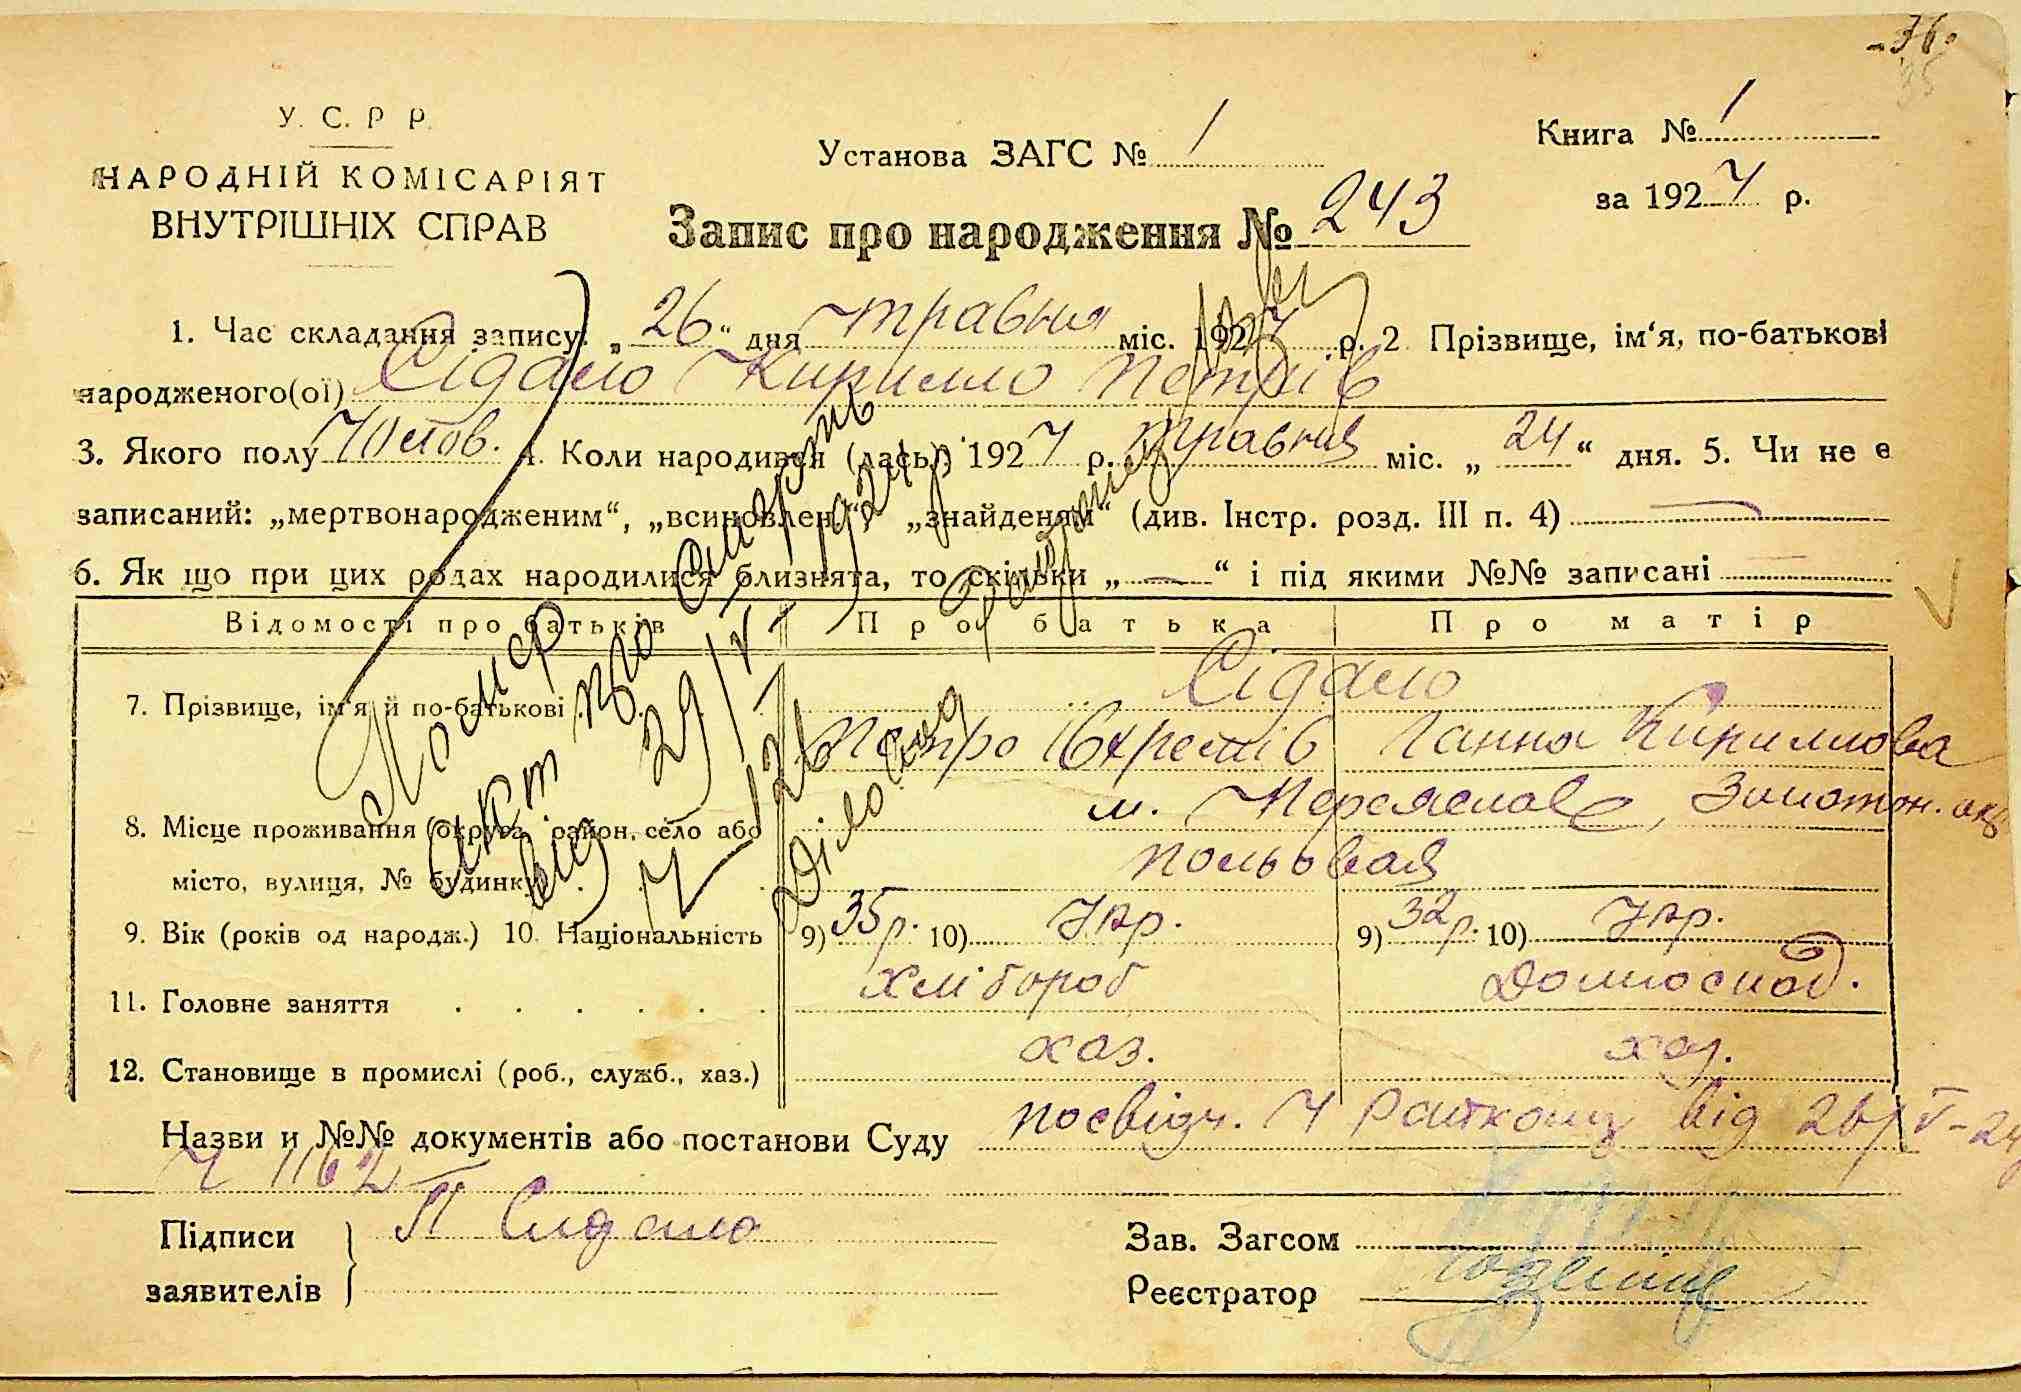 76.
У. С. Р Р.
НАРОДНІЙ КОМІСАРІЯТ
ВНУТРІШНІХ СПРАВ
Установа ЗАГС № 1
Книга № 1
за 1927 р.
Запис про народження № 243
1. Час складання запису: „26“ дня травня міс. 1927 р. 2 Прізвище, ім‘я, по-батькові
народженого(ої) Сідало Кирилло Петрів
3. Якого полу чолов. 4. Коли народився (лась): 1927 р. травня міс. „24“ дня. 5. Чи не є
записаний: „мертвонародженим“, „всиновлен.“, „знайденим“ (див. Інстр. розд. III п. 4)
6. Як що при цих родах народилися близнята, то скільки „—“ і під якими №№ записані —
Відомості про батьків Про батька Про матір
7. Прізвище, ім‘я й по-батькові Сідало
Петро Охремів Ганна Кириллова
8. Місце проживання (округа, район, село або м. Переяслав, Золотон. окр
місто, вулиця, № будинку) Польовая
9. Вік (років од народж.) 10. Національність 9) 35 р. 10) Укр. 9) 32 р. 10) Укр.
11. Головне заняття хлібороб домгоспод.
12. Становище в промислі (роб., служб., хаз.) хаз. хаз.
Назви и №№ документів або постанови Суду посвідч. Ч Райкому від 26/V-27
Ч 1162
Підписи
заявителів
П Сидало
Зав. Загсом
Реєстратор
Помер
акт про смерть
від 29/V 1927 р.
Ч 126
Діловод